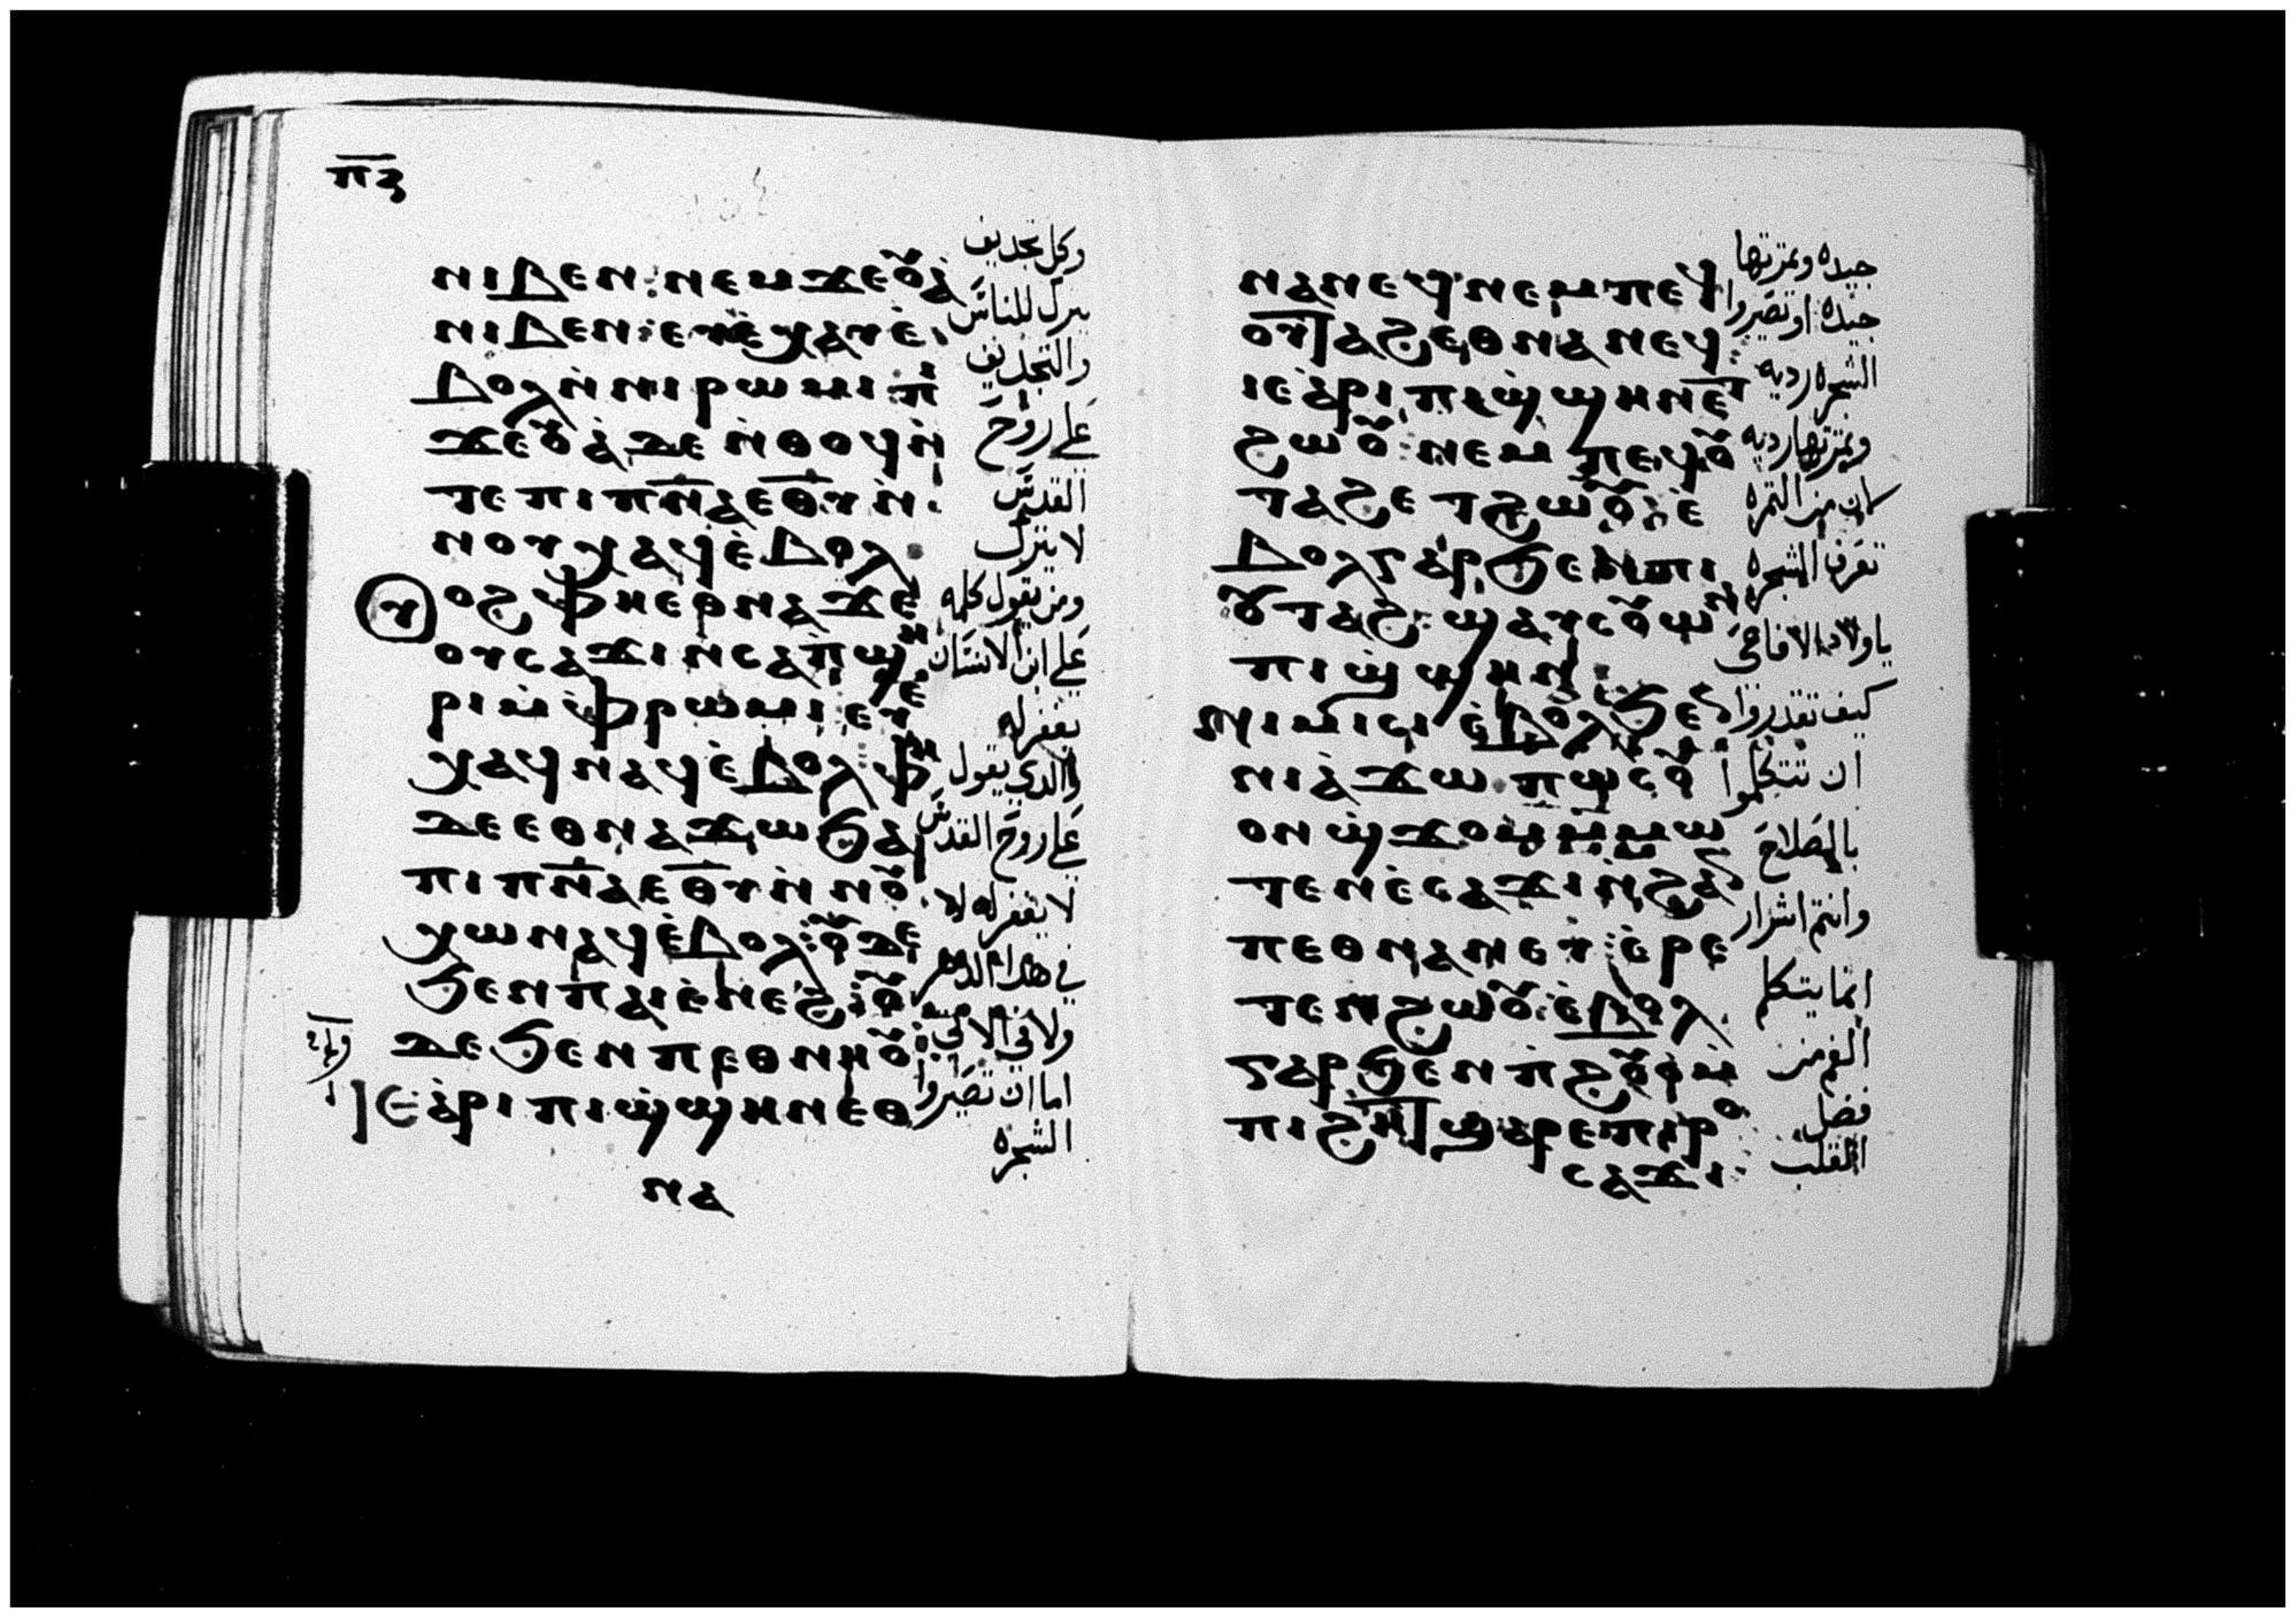 ⲡⲍ
ⲛⲓⲃⲉⲛ: ⲛⲉⲙϫⲉⲟⲩⲁ̀
ⲛⲓⲃⲉⲛ: ⲉⲩⲉ̀ⲭⲁⲩⲉ̀
ⲃⲟⲗⲛ̀ⲛⲓⲣⲱⲙⲓ ⲡⲓ
ϫⲉⲟⲩⲁ̀ ⲇⲉ ⲛ̀ⲑⲟϥ ⲛ̀
ⲧⲉ ⲡⲓⲡⲛ̅ⲁ̅ ⲉⲑⲩ ⲛ̀
ⲛⲟⲩⲭⲁϥ ⲉ̀ⲃⲟⲗ
ⲟϩ ⲫⲏ ⲉⲑⲛⲁϫⲉ
ⲟⲩⲥⲁϫⲓ ⲛⲥⲁ ⲡ̀ϣⲏ
ⲣⲓ ⲙ̀ⲫⲣⲱⲙⲓ: ⲉⲩⲉ̀
ⲭⲁϥ ⲛⲁϥ ⲉ̀ⲃⲟⲗ: ⲫⲏ
ⲇⲉ ⲉⲑⲛⲁϫⲱ ϧⲁ
ⲡⲓⲡⲛ̅ⲁ̅ ⲉⲑⲩ ⲛ̀ ⲛⲟⲩ
ⲭⲱ ⲛⲁϥ ⲉ̀ⲃⲟⲗ: ⲟⲩⲇⲉ
ϧⲉⲛ ⲡⲁⲓⲉ̀ⲛⲉϩ: ⲟⲩ
ⲇⲉ ϧⲉⲛ ⲡⲉⲑⲛⲏⲟⲩ:
ⲓⲉ ⲁ̀ⲣⲓ ⲡⲓϣ̀ϣⲏⲛ ⲉⲑ
ⲛⲁ
وكل تجديف
يترك للناس
والتجديف
على روح
القدس
لا يترك
ومن يقول كلمه
على ابن الانسان
يغفر له
والدي يقول
على روح القدس
لا يغفر له لا
في هدا الدهر
ولا في الاتي
اما ان تصيروا
الشجره
ⲛⲁⲛⲉϥ ⲛⲉⲙ ⲡⲉϥ
ⲟⲩⲧⲁϩ ⲉⲑⲛⲁⲛⲉϥ:
ⲓⲉ ⲁ̀ⲣⲓ ⲡⲓϣ̀ϣⲏⲛ ⲉⲧ
ϩⲱⲟⲩ: ⲛⲉⲙ ⲡⲉϥⲟⲩ
ⲧⲁϩ ⲉⲧϩⲱⲟⲩ: ⲉ̀
ⲃⲟⲗ ⲅⲁⲣ ϧⲉⲛ ⲡⲓ
ⲟⲩⲧⲁϩ: ϣⲁⲩⲥⲟⲩⲱⲛ
ⲡⲓϣ̀ϣⲏⲛ
ⲛⲓⲙⲓⲥⲓ ⲉ̀ⲃⲟⲗ ϧⲉⲛ
ⲛⲓⲁ̀ϫⲱ ⲡⲱⲥ ⲟⲩ
ⲟⲛ ϣ̀ϫⲟⲙ ⲙ̀ⲙⲱ
ⲧⲉⲛ ⲉ̀ⲥⲁϫⲓ ⲛ̀ϩⲁⲛ
ⲡⲉⲑⲛⲁⲛⲉⲩ: ⲉ̀ⲣⲉ
ⲧⲉⲛϩⲱⲟⲩ: ⲉ̀ⲃⲟⲗ
ⲅⲁⲣ ϧⲉⲛ ⲡ̀ϩⲟⲩⲟ̀ ⲙ̀
ⲡⲓϩⲏⲧ ϣⲁⲣⲉ ⲡⲓⲣⲟ
ⲥⲁϫⲓ:
جيده وتمرتها
جيده او تصيروا
الشجره رديه
وتمرتها رديه
لان من التمره
تعرف الشجره
يا ولاد الافاعى
كيف تقدروا
ان تتكلموا
بالصلاح
وانتم اشرار
انما يتكلم
الفم من
فضل
القلب